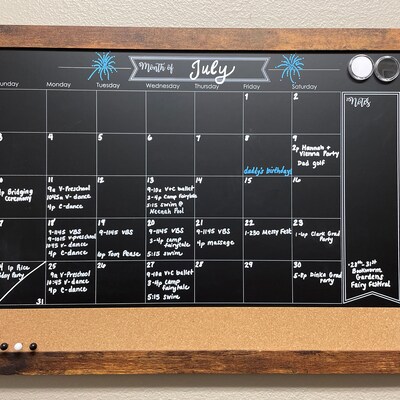 Month of July
unday Monday Tuesday Wednesday Thursday Friday Saturday
1 2
Notes
3 4 5 6 7 8 9
daddy's birthday
2p Hannah +
Vienna Party
Dad golf
10 11 12 13 14 15 16
Bridging
Ceremony
9a V-Preschool
1045a V-dance
4p C-dance
9-10a V+C ballet
3-4p Camp fairytale
5:15 swim @
Neenah Pool
17 18 19 20 21 22 23
9-1145 VBS
9-1015 V-preschool
1045 V-dance
4p C-dance
9-1145 VBS
6p Tom Pease
9-1145 VBS
3-4p camp
fairytale
5:15 swim
9-1145 VBS
4p massage
1-230 Messy Fest
1-4p Clark Grad
Party
24 25 26 27 28 29 30
1p Rice
day Party
31
9a V-Preschool
10:45 V-dance
4p C-dance
9-10a V+C ballet
3-4p Camp
fairytale
5:15 swim
5-8p Dieka Grad
party
-28th-31st
Bookworm
Gardens
Fairy Festival